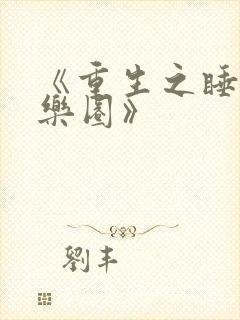 《重生之睡
樂園》
劉丰